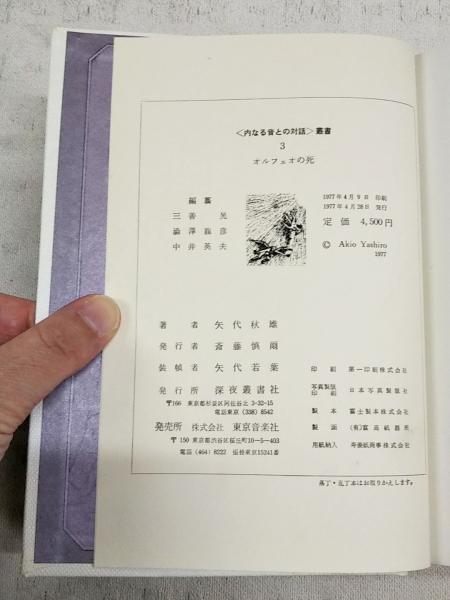 〈内なる音との対話〉叢書
3
オルフェオの死
編纂
三善晃
澁澤龍彦
中井英夫
1977年4月9日 印刷
1977年4月28日 発行
定価 4,500円
© Akio Yashiro
1977
著者 矢代秋雄
発行者 斎藤愼爾
装幀者 矢代若葉
発行所 深夜叢書社
〒166 東京都杉並区阿佐谷北 3-32-15
電話東京 (338) 8542
発売所 株式会社 東京音楽社
〒150 東京都渋谷区桜丘町10-5-403
電話 (464) 8222 振替東京15241番
印刷 第一印刷株式会社
写真製版
印刷 日本写真製版社
製本 富士製本株式会社
製函 (有)富
用紙納入 寿優紙商事株式会社
落丁・乱丁本はお取りかえします。